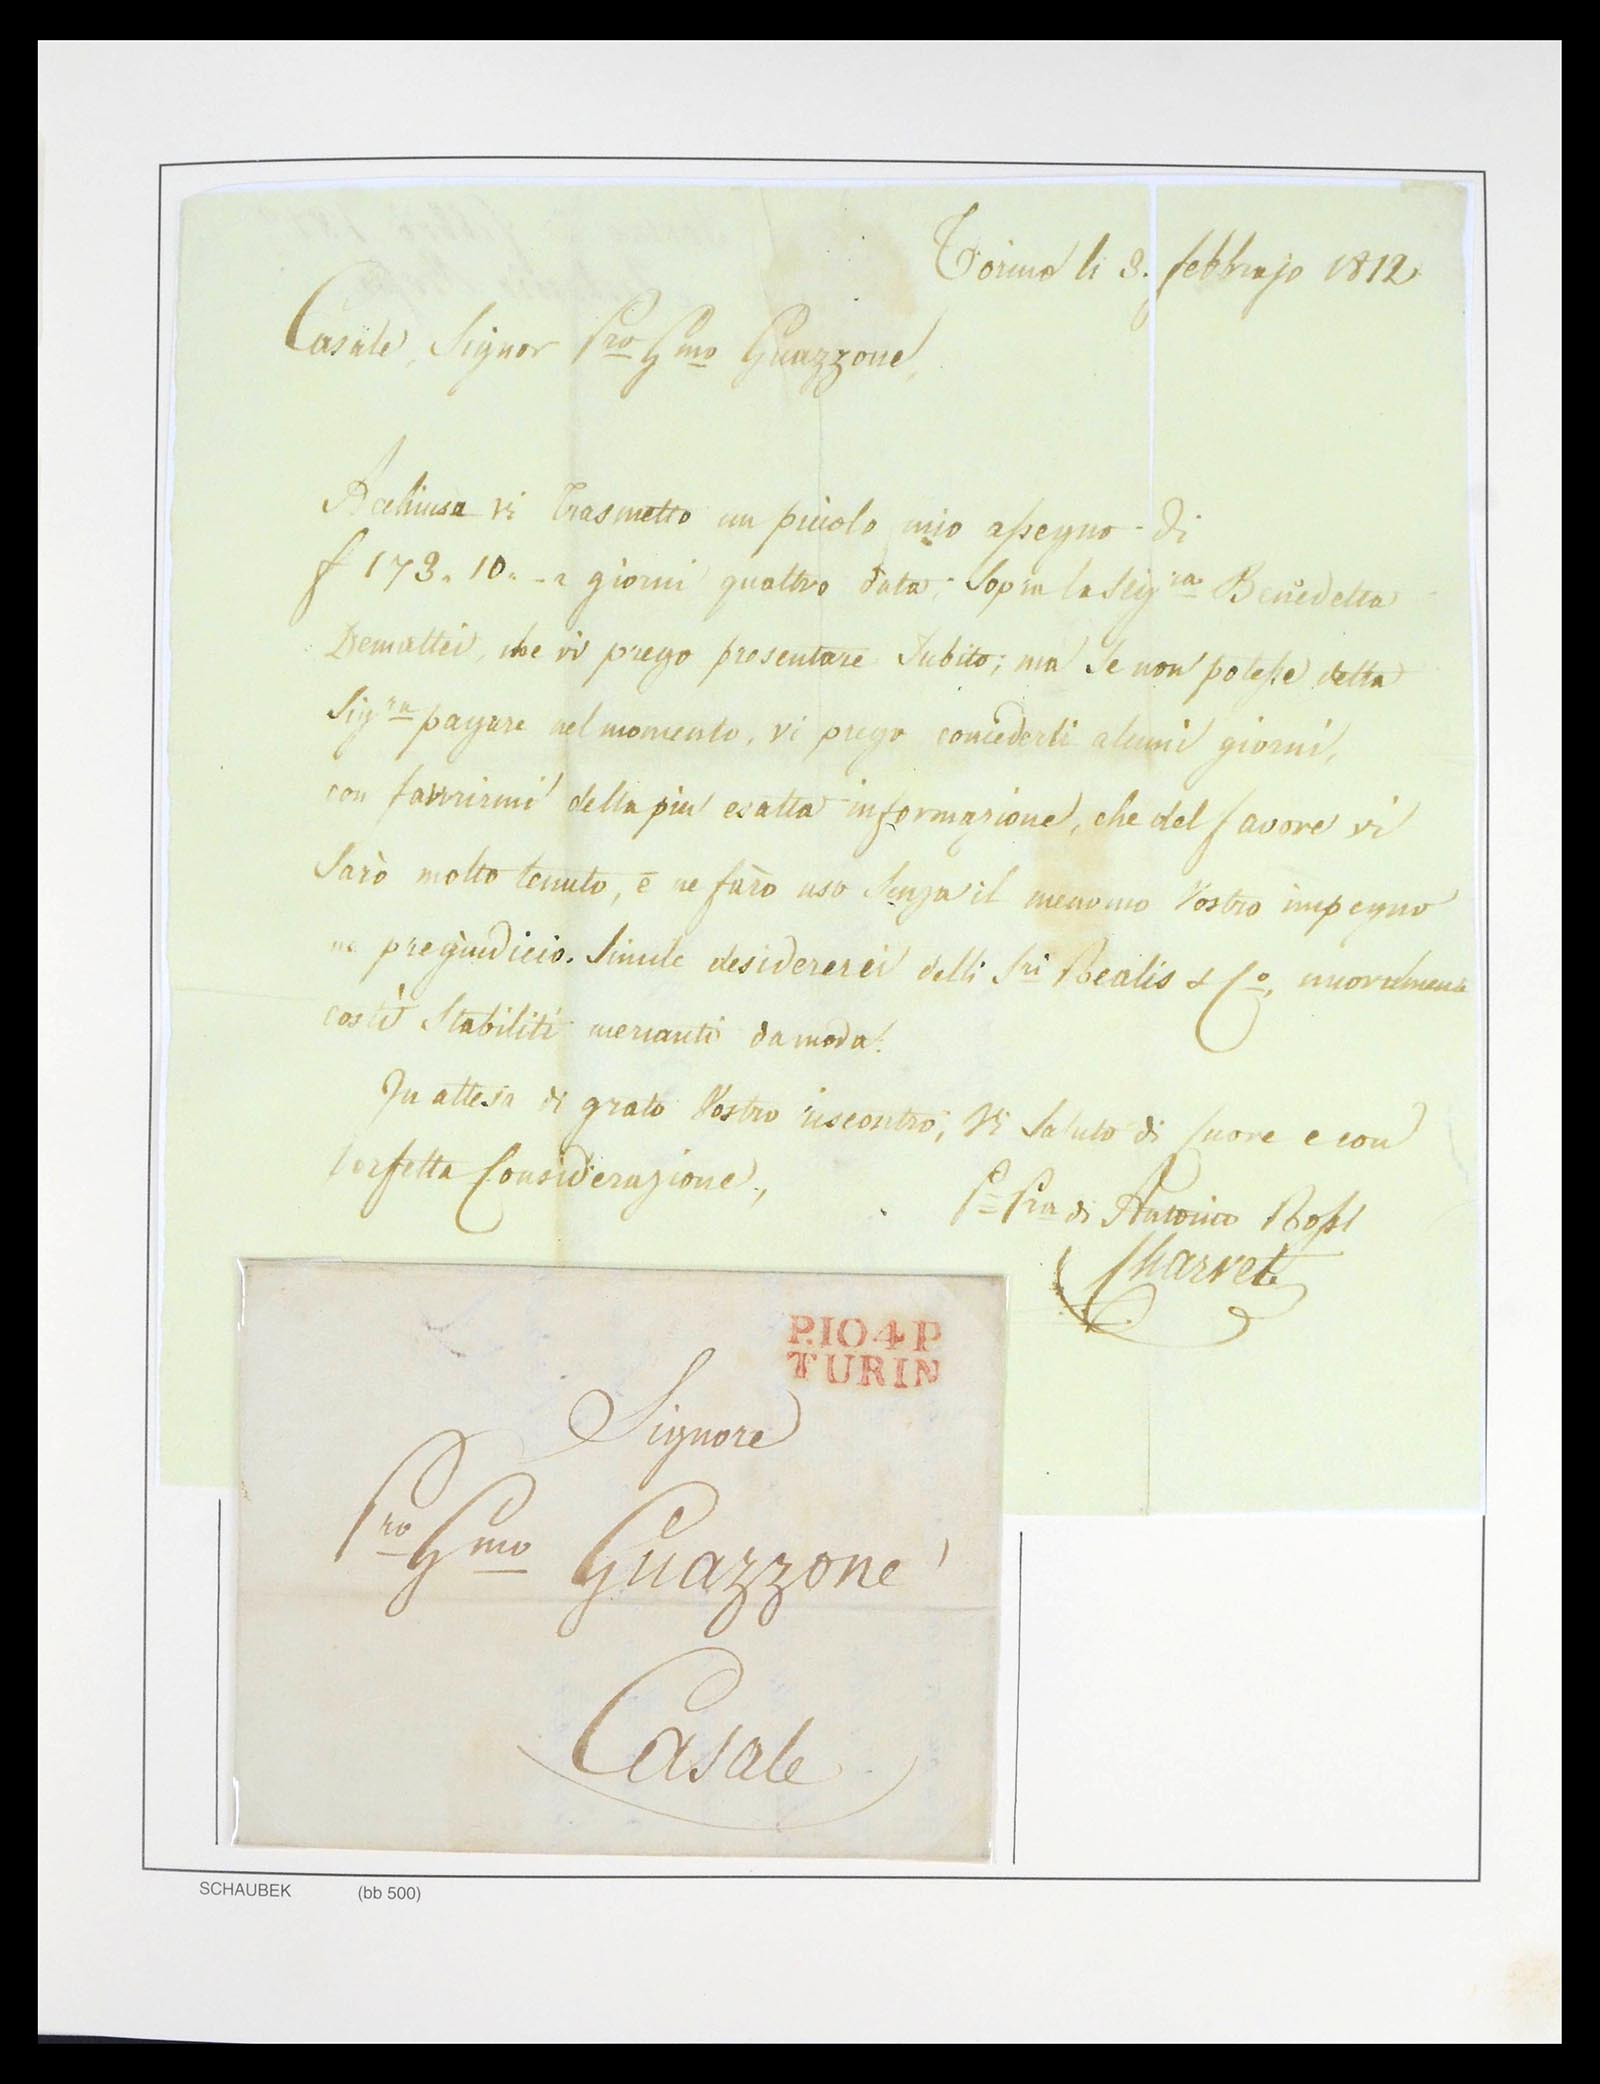 Torino li 3. febbrajo 1812
Casale, Signor Pro Gmo Guazzone,
Acchiusa vi trasmetto un picolo mio assegno di
f 173. 10. - a giorni quattro data, Sopra la Sigra Benedetta
Demattei, che vi prego presentare Subito; ma Se non potesse detta
Sigra pagare nel momento, vi prego concederli alcuni giorni,
con favorirmi della più esatta informazione, che del favore vi
Sarò molto tenuto, e ne farò uso Senza il menomo Vostro impegno
ne pregiudicio. Simile desidererei delli Sri Realis & Co, nuovamente
costì Stabiliti mercanti da moda.
In attesa di grato Vostro riscontro, Vi Saluto di Cuore e con
perfetta Considerazione,
Pr Pra di Antonio Rossi
Charvet
P.104.P
TURIN
Signore
Pro Gmo Guazzone
Casale
SCHAUBEK (bb 500)